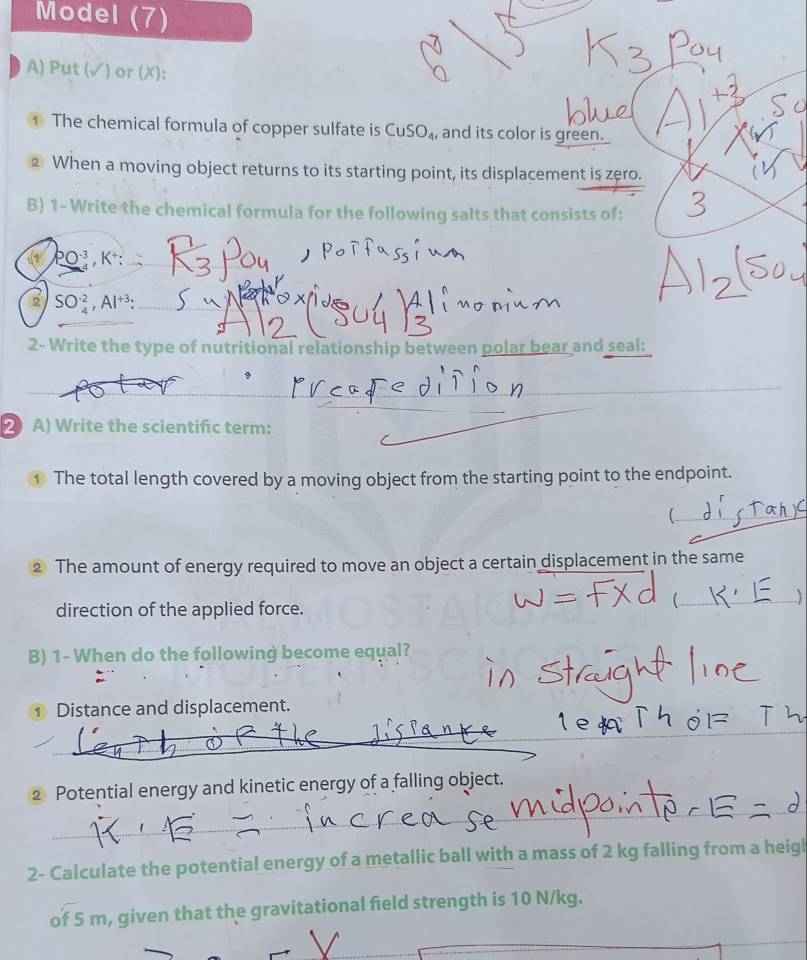 Model (7)
A) Put (✓) or (X):
K3 Po4
1 The chemical formula of copper sulfate is CuSO4, and its color is green.
blue
Al+3
2 When a moving object returns to its starting point, its displacement is zero.
3
B) 1- Write the chemical formula for the following salts that consists of:
1 PO4-3, K+: K3 Po4
Al2(SO4
2 SO4-2, Al+3: Alimonium
Al2(SO4)3
2- Write the type of nutritional relationship between polar bear and seal:
polar Preafedition
2 A) Write the scientific term:
1 The total length covered by a moving object from the starting point to the endpoint.
( distanc
2 The amount of energy required to move an object a certain displacement in the same
direction of the applied force. W = F x d ( K.E )
B) 1- When do the following become equal?
in straight line
1 Distance and displacement.
Length of the distance
2 Potential energy and kinetic energy of a falling object.
K.E = increase midpoint P.E = d
2- Calculate the potential energy of a metallic ball with a mass of 2 kg falling from a heigh
of 5 m, given that the gravitational field strength is 10 N/kg.